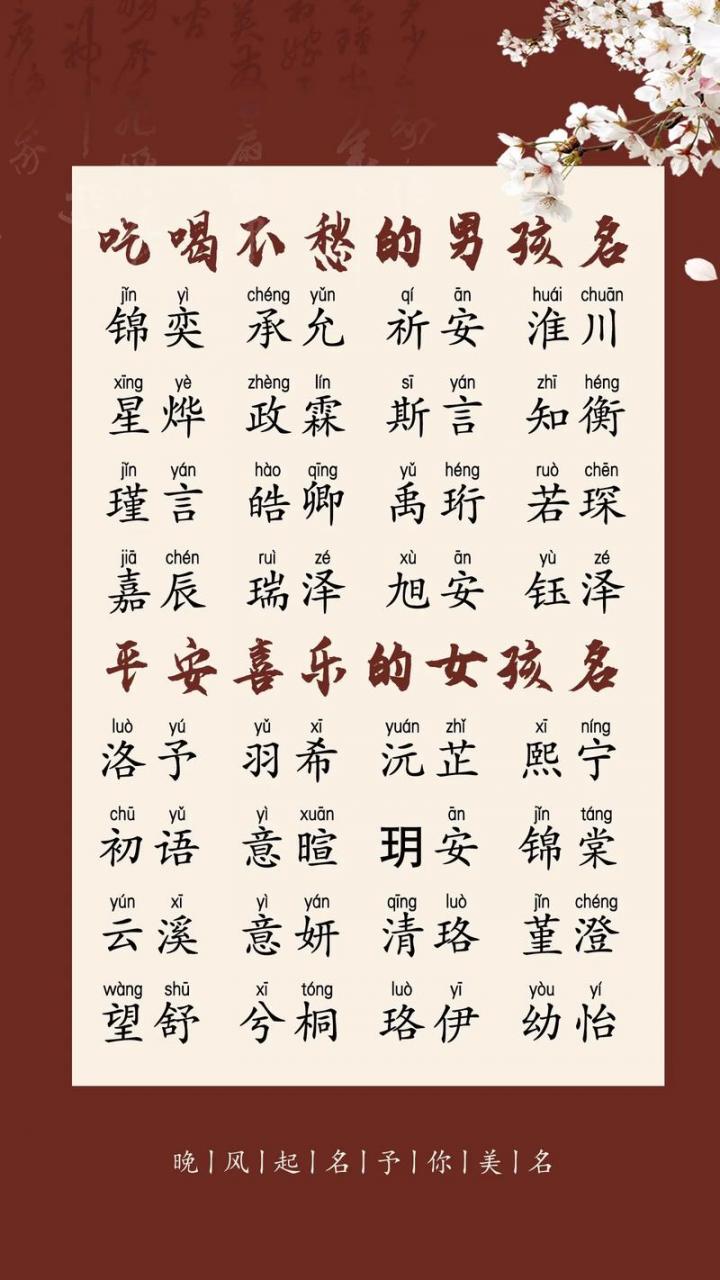 吃喝不愁的男孩名
jǐn yì chéng yǔn qí ān huái chuān
锦奕 承允 祈安 淮川
xīng yè zhèng lín sī yán zhī héng
星烨 政霖 斯言 知衡
jǐn yán hào qīng yǔ héng ruò chēn
瑾言 皓卿 禹珩 若琛
jiā chén ruì zé xù ān yù zé
嘉辰 瑞泽 旭安 钰泽
平安喜乐的女孩名
luò yú yǔ xī yuán zhǐ xī níng
洛予 羽希 沅芷 熙宁
chū yǔ yì xuān ān jǐn táng
初语 意暄 玥安 锦棠
yún xī yì yán qīng luò jǐn chéng
云溪 意妍 清珞 堇澄
wàng shū xī tóng luò yī yòu yí
望舒 兮桐 珞伊 幼怡
晚|风|起|名|予|你|美|名